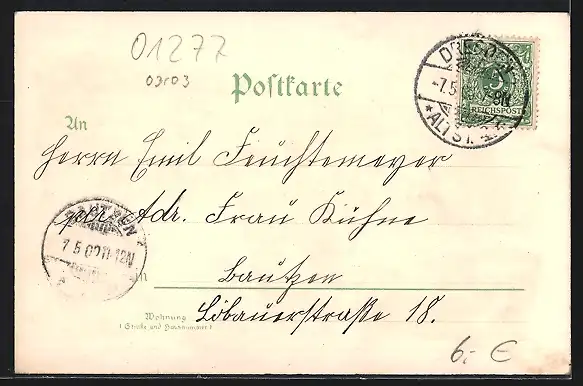 01277
03r03
Postkarte
DRESDEN
ALTST.
-7.5
REICHSPOST
An
Herrn Emil Feuchtemeyer
per Adr. Frau Kühne
BAUTZEN
7.5.00 11-12N
in Bautzen
Wohnung
(Straße und Hausnummer)
Löbauerstraße 18.
6,- €